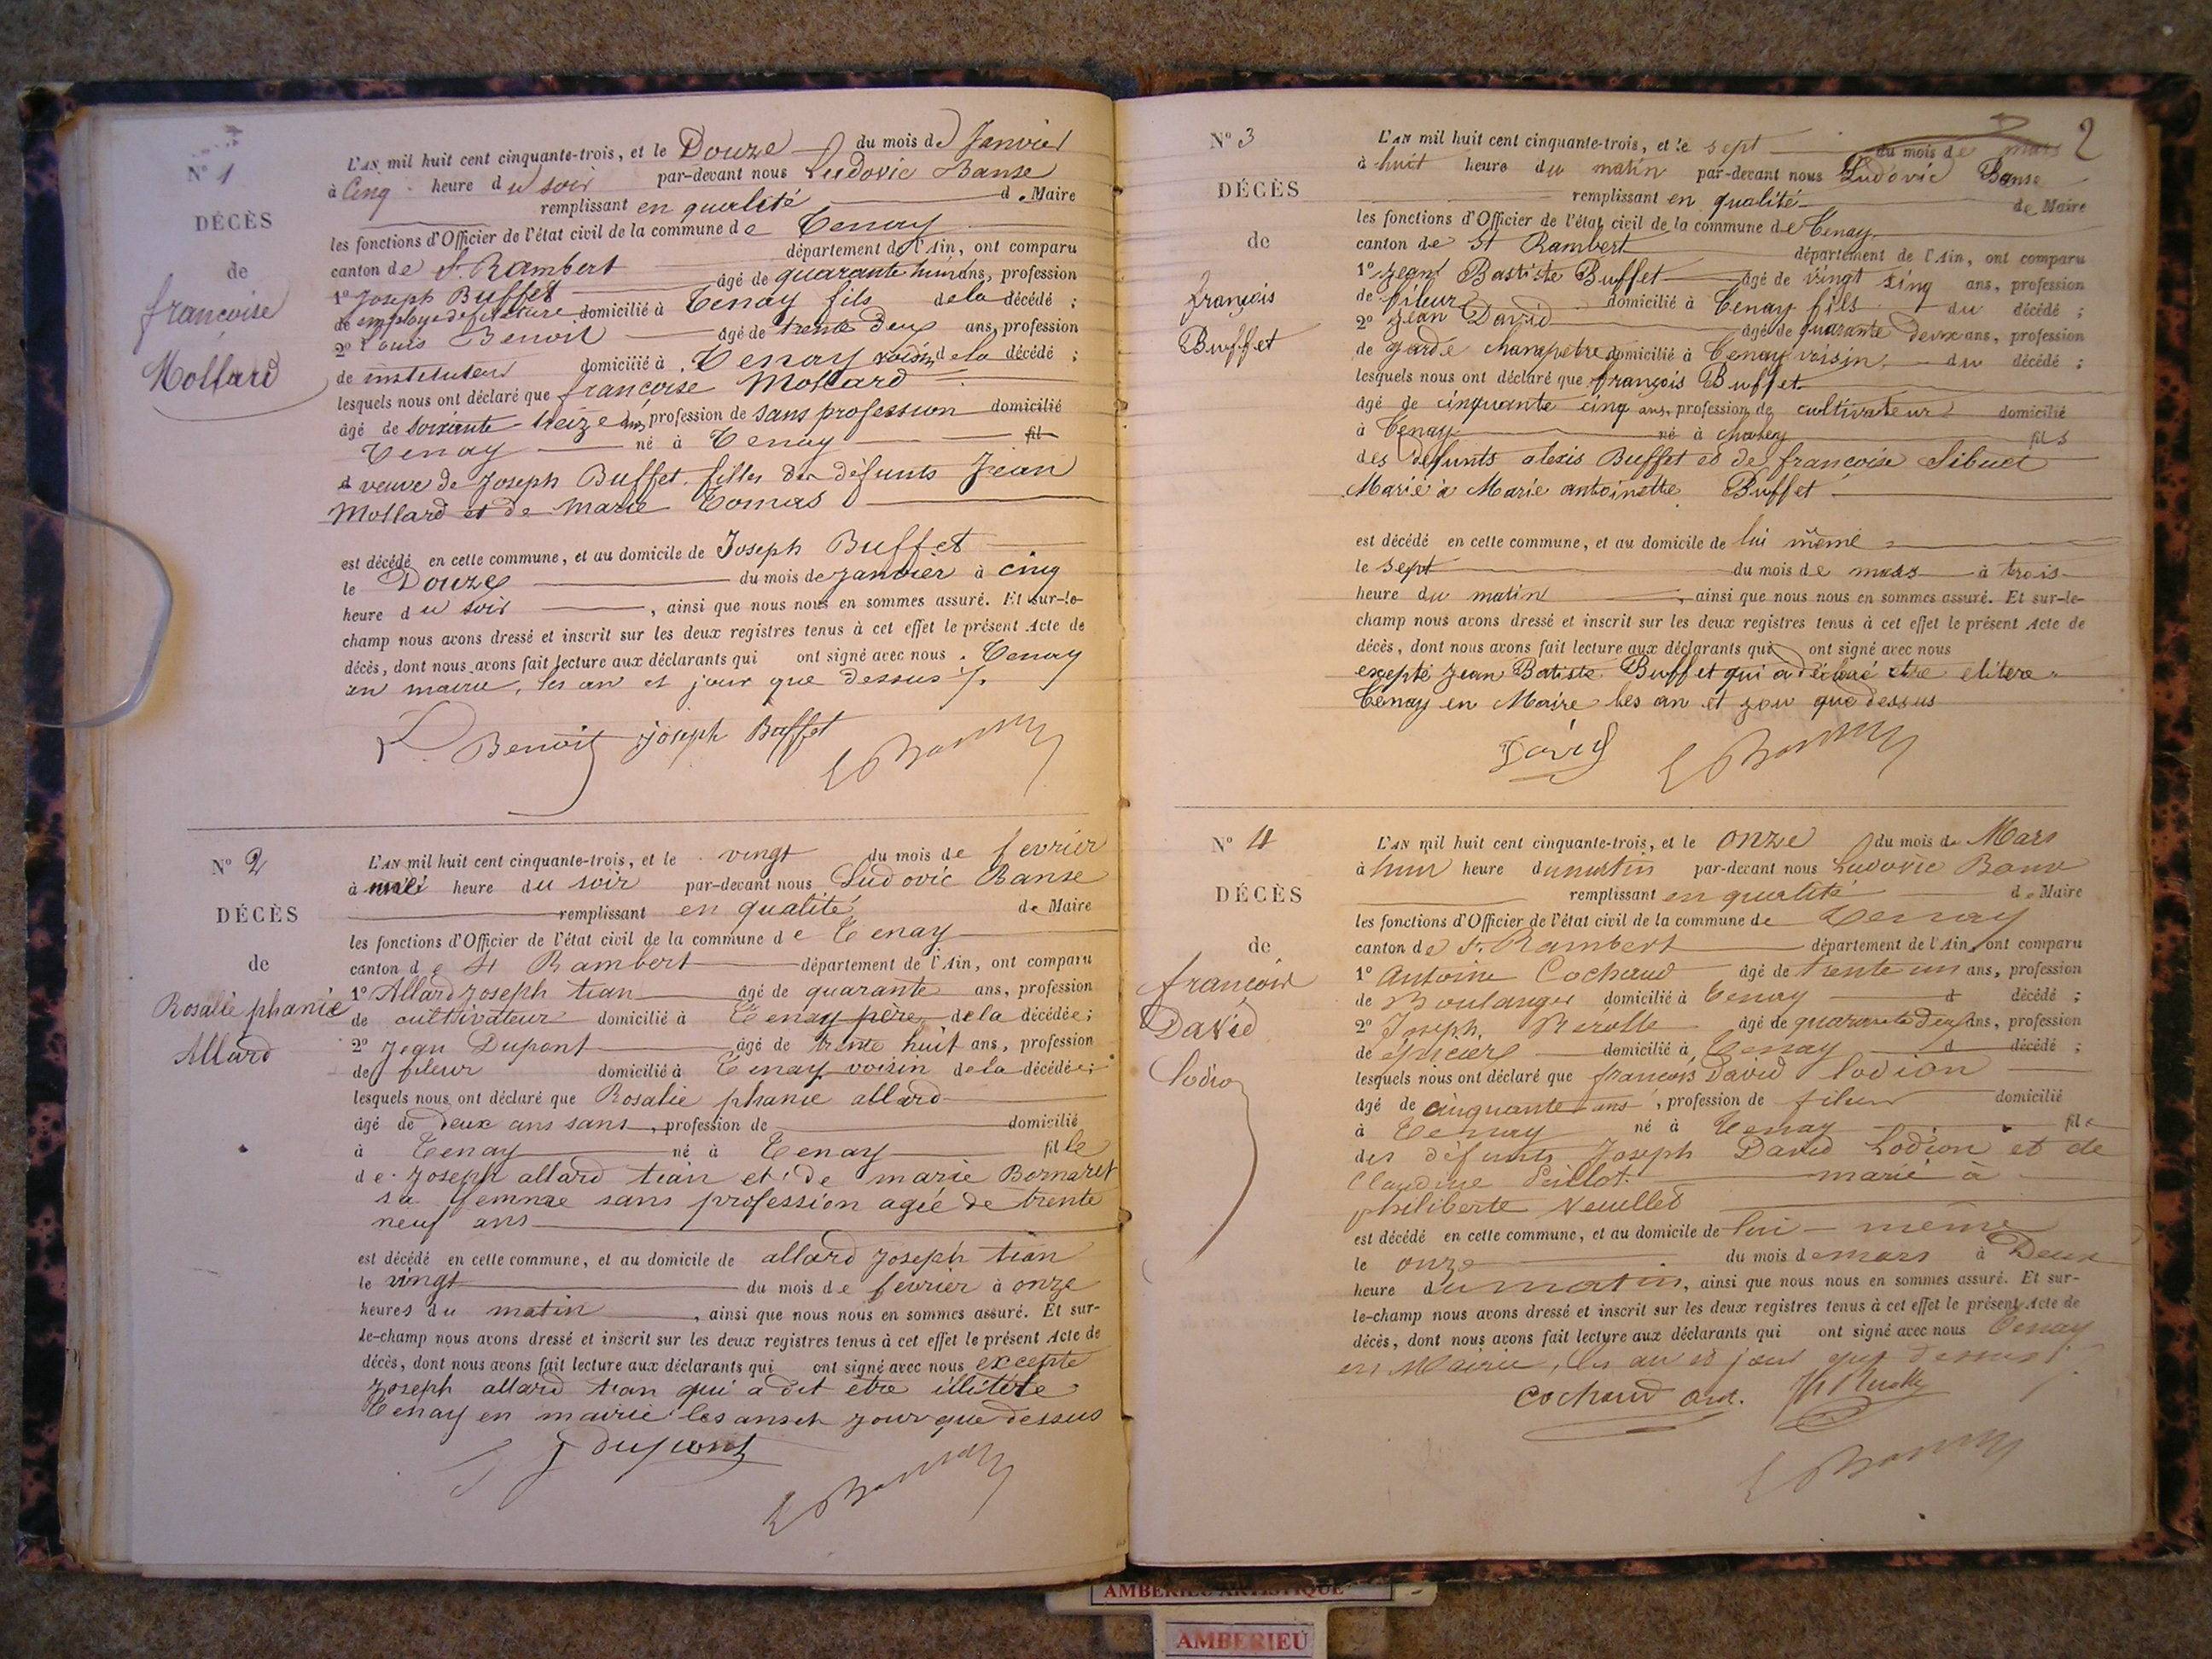 Nº 1
DÉCÈS
de
françoise
Mollard
L'AN mil huit cent cinquante-trois, et le Douze du mois de Janvier
à Cinq heure du soir par-devant nous Ludovic Banse
remplissant en qualité de Maire
les fonctions d'Officier de l'état civil de la commune de Tenay
canton de St Rambert département de l'Ain, ont comparu
1º Joseph Buffet âgé de quarante hun ans, profession
de employé de filature domicilié à Tenay fils de la décédé ;
2º Louis Benoit âgé de trente deux ans, profession
de instituteur domicilié à Tenay voisin de la décédé ;
lesquels nous ont déclaré que francoise Mollard
âgé de soixante treize ans, profession de sans profession domicilié
Tenay né à Tenay fil
veuve de Joseph Buffet filles de défunts Jean
Mollard et de marie Tomas
est décédé en cette commune, et au domicile de Joseph Buffet
le Douze du mois de janvier à cinq
heure du soir, ainsi que nous nous en sommes assuré. Et sur-le-
champ nous avons dressé et inscrit sur les deux registres tenus à cet effet le présent Acte de
décès, dont nous avons fait lecture aux déclarants qui ont signé avec nous. Tenay
en mairie, les an et jour que dessus
L. Benoit Joseph Buffet
Nº 2
DÉCÈS
de
Rosalie phanie
Allard
L'AN mil huit cent cinquante-trois, et le vingt du mois de fevrier
à heure du soir par-devant nous Ludovic Banse
remplissant en qualité de Maire
les fonctions d'Officier de l'état civil de la commune de Tenay
canton de St Rambert département de l'Ain, ont comparu
1º Allard joseph tian âgé de quarante ans, profession
de cultivateur domicilié à Tenay père de la décédée ;
2º Jean Dupont âgé de trente huit ans, profession
de fileur domicilié à Tenay voisin de la décédée ;
lesquels nous ont déclaré que Rosalie phanie allard
âgé de deux ans sans, profession de domicilié
à Tenay né à Tenay fille
de Joseph allard tian et de marie Bornaret
sa femme sans profession agée de trente
neuf ans
est décédé en cette commune, et au domicile de allard joseph tian
le vingt du mois de février à onze
heures du matin, ainsi que nous nous en sommes assuré. Et sur-
le-champ nous avons dressé et inscrit sur les deux registres tenus à cet effet le présent Acte de
décès, dont nous avons fait lecture aux déclarants qui ont signé avec nous excepté
Joseph allard tian qui a dit etre illitéré
Tenay en mairie les an et jour que dessus
J dupont
2
Nº 3
DÉCÈS
de
françois
Buffet
L'AN mil huit cent cinquante-trois, et le sept du mois de mars
à huit heure du matin par-devant nous Ludovic Banse
remplissant en qualité de Maire
les fonctions d'Officier de l'état civil de la commune de Tenay
canton de St Rambert département de l'Ain, ont comparu
1º Jean Bastiste Buffet âgé de vingt sinq ans, profession
de fileur domicilié à Tenay fils du décédé ;
2º Jean David âgé de quarante deux ans, profession
de garde champetre domicilié à Tenay voisin du décédé ;
lesquels nous ont déclaré que françois Buffet
âgé de cinquante cinq ans, profession de cultivateur domicilié
à Tenay né à chaley fils
des défunts alexis Buffet et de francoise Sibuet
Marié à Marie antoinette Buffet
est décédé en cette commune, et au domicile de lui même
le sept du mois de mars à trois
heure du matin, ainsi que nous nous en sommes assuré. Et sur-le-
champ nous avons dressé et inscrit sur les deux registres tenus à cet effet le présent Acte de
décès, dont nous avons fait lecture aux déclarants qui ont signé avec nous
excepté Jean Batiste Buffet qui a déclaré etre elitere
Tenay en Maire les an et jou que dessus
David
Nº 4
DÉCÈS
de
françois
David
Lodion
L'AN mil huit cent cinquante-trois, et le onze du mois de Mars
à hun heure du matin par-devant nous Ludovic Banse
remplissant en qualité de Maire
les fonctions d'Officier de l'état civil de la commune de Tenay
canton de St Rambert département de l'Ain, ont comparu
1º Antoine Cochaud âgé de trente un ans, profession
de Boulanger domicilié à Tenay d décédé ;
2º Joseph Nérolle âgé de quarante deux ans, profession
de épiciere domicilié à Tenay d décédé ;
lesquels nous ont déclaré que francois David Lodion
âgé de cinquante ans, profession de fileur domicilié
à Tenay né à Tenay fils
des défunts Joseph David Lodion et de
Claudine Peillot marié à
philiberte
est décédé en cette commune, et au domicile de lui-même
le onze du mois de mars à Deux
heure du matin, ainsi que nous nous en sommes assuré. Et sur-
le-champ nous avons dressé et inscrit sur les deux registres tenus à cet effet le présent Acte de
décès, dont nous avons fait lecture aux déclarants qui ont signé avec nous Tenay
en Mairie, les an et jour que dessus
Cochaud ant.
AMBERIEU ARTISTIQUE
AMBERIEU